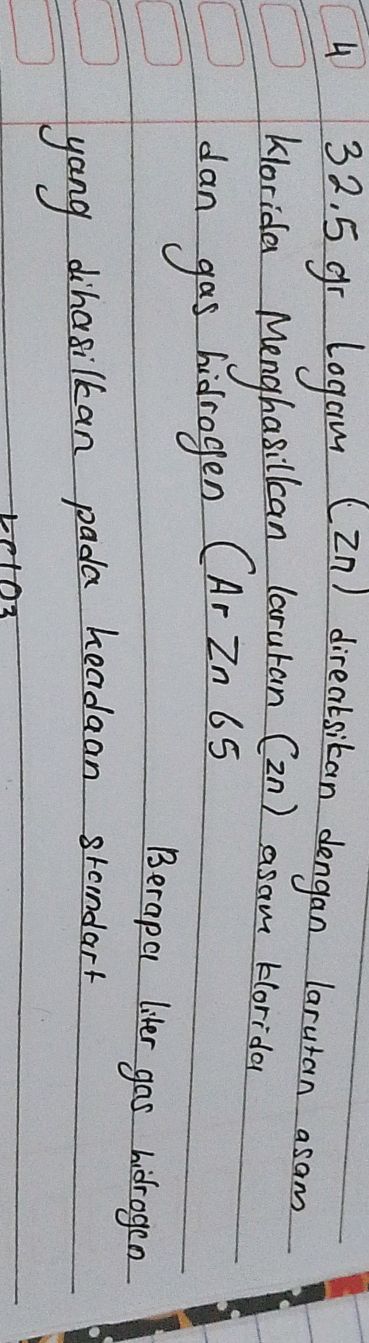 4 32,5 gr Logam (Zn) direaksikan dengan larutan asam
klorida Menghasilkan larutan (Zn) asam klorida
dan gas hidrogen (Ar Zn 65
Berapa liter gas hidrogen
yang dihasilkan pada keadaan standart